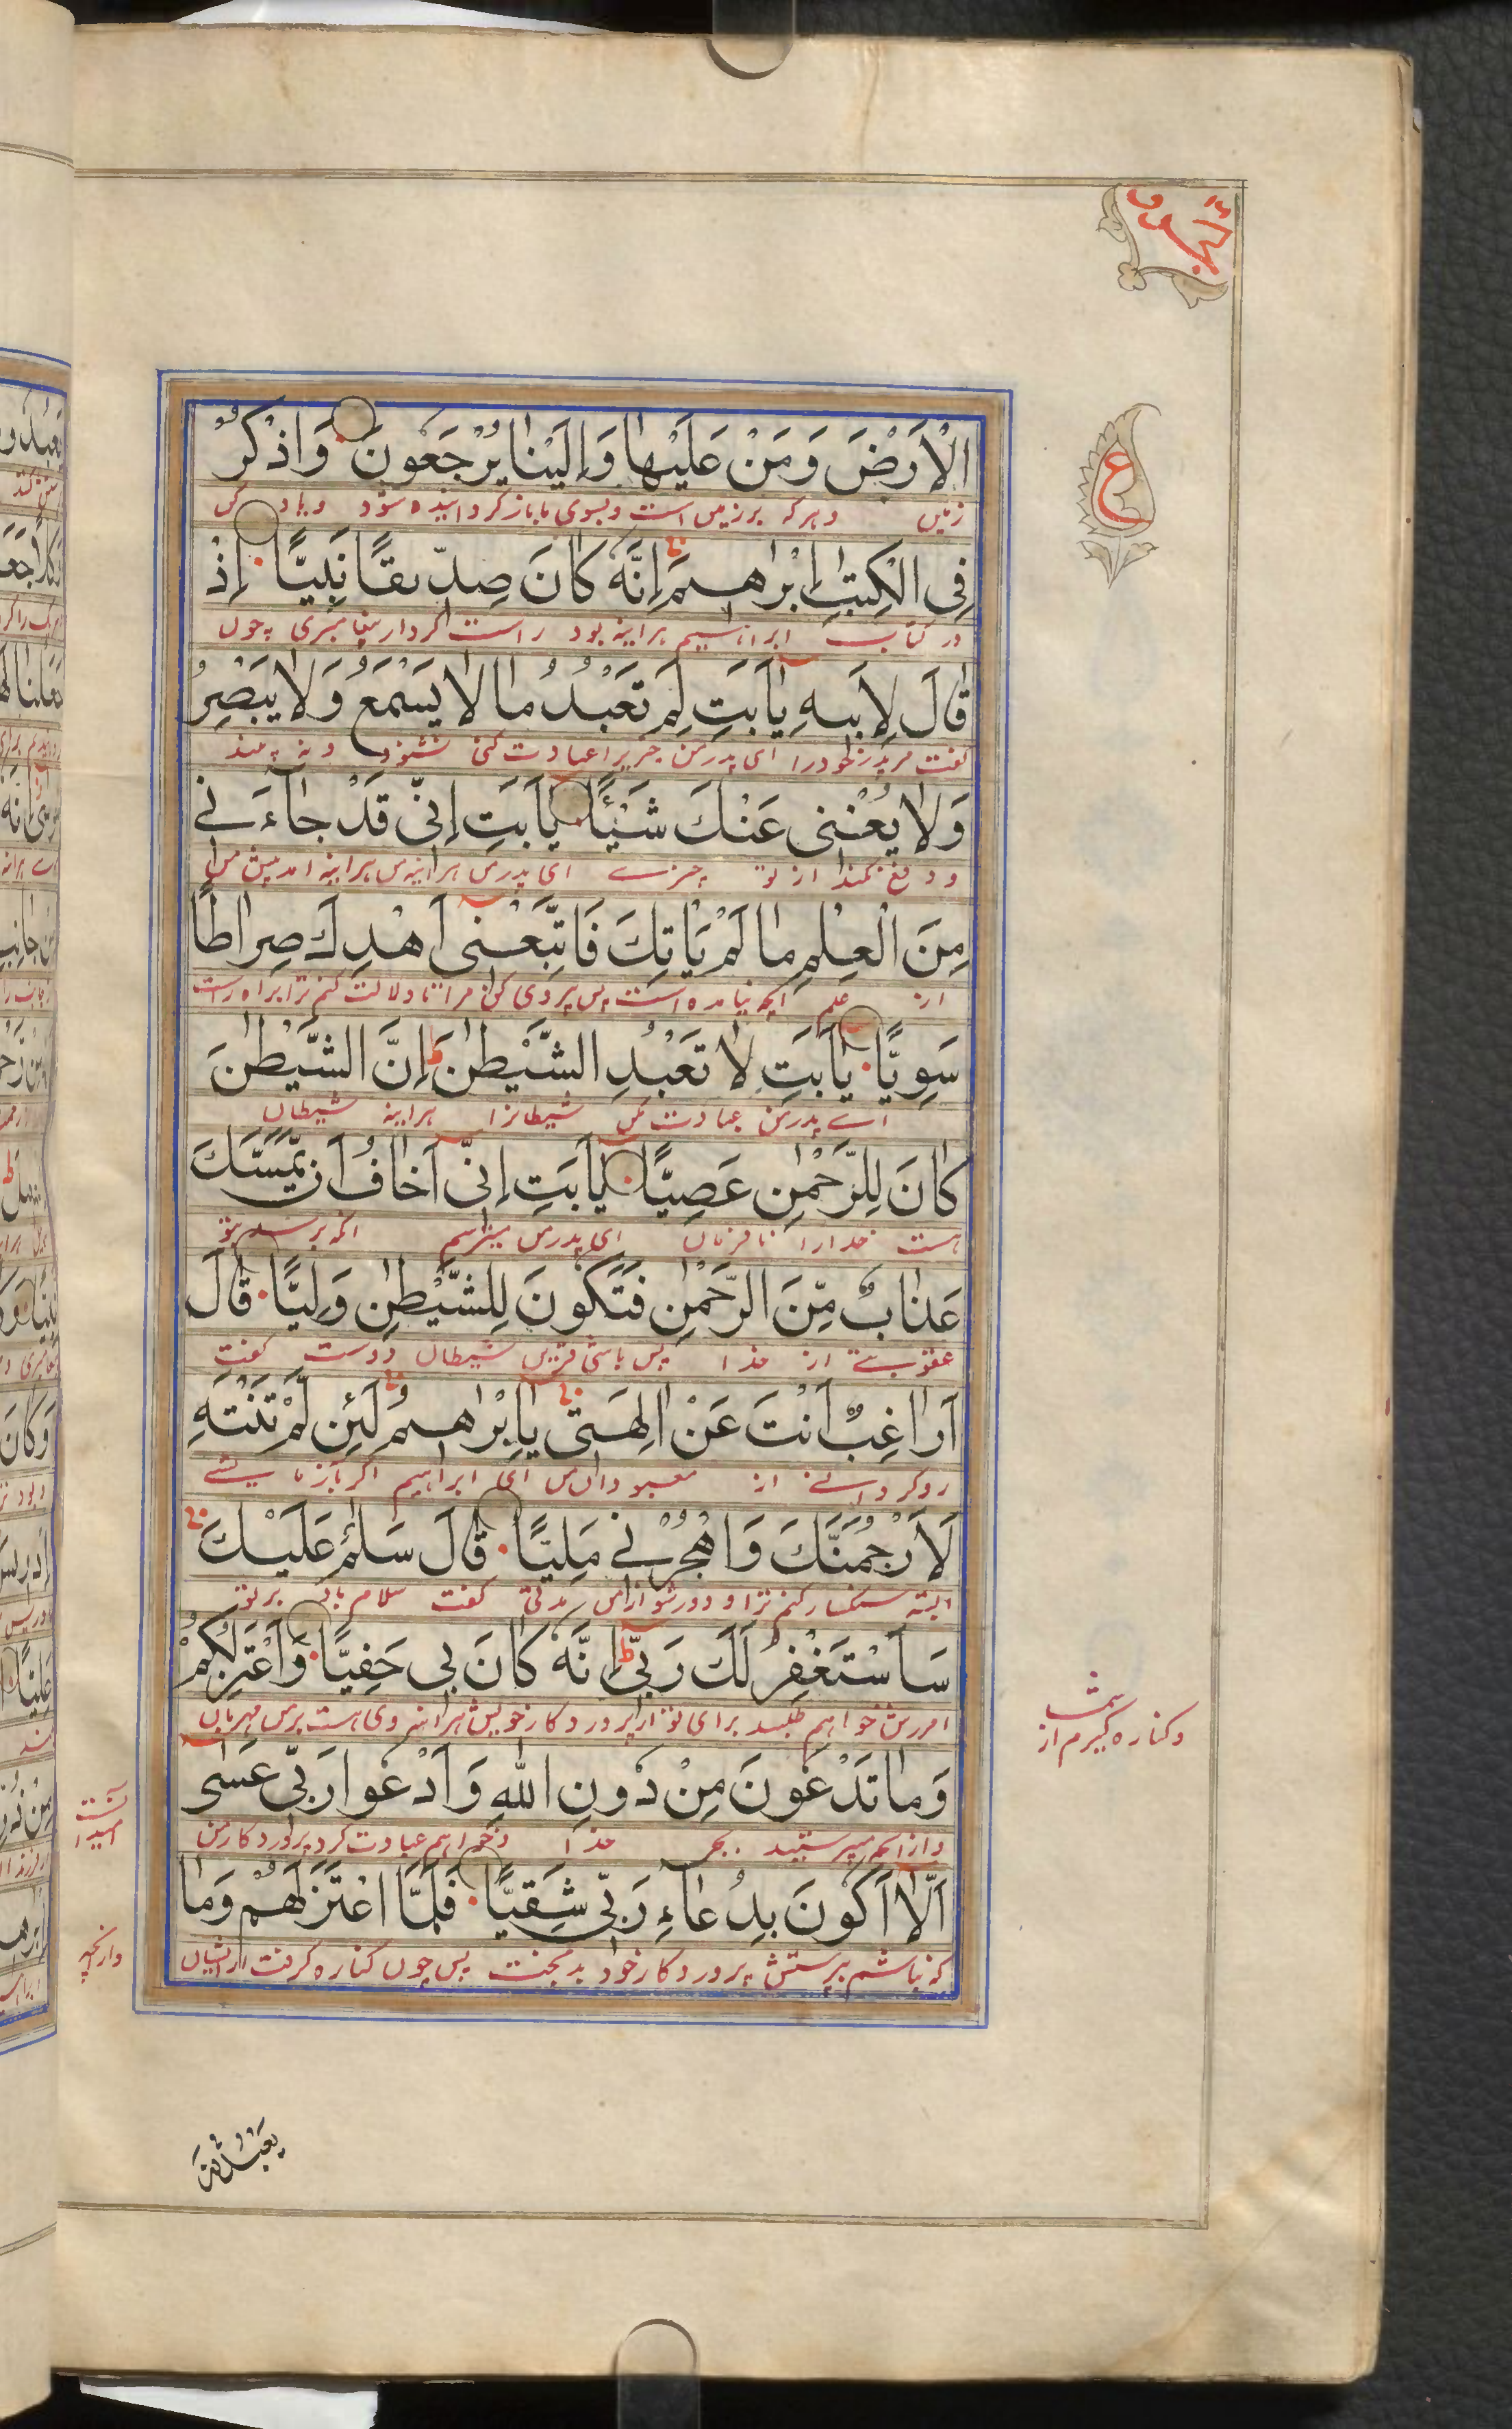 الْاَرْضَ وَمَنْ عَلَيْهَا وَاِلَيْنَا يُرْجَعُونَ وَاذْكُرْ
زمین و هر که بر زمین است و بسوی ما باز گردانیده شود و یاد کن
فِي الْكِتٰبِ اِبْرٰهِيمَ اِنَّهُ كَانَ صِدِّيقًا نَبِيًّا اِذْ
در کتاب ابراهیم هراینه بود راست کردار پیغامبری چون
قَالَ لِاَبِيهِ يَا اَبَتِ لِمَ تَعْبُدُ مَا لَا يَسْمَعُ وَلَا يُبْصِرُ
گفت مر پدر خود را ای پدر من چیزیرا عبادت کنی نشنود و نه بیند
وَلَا يُغْنِي عَنْكَ شَيْئًا يَا اَبَتِ اِنِّي قَدْ جَاۤءَنِي
و دفع نکند از تو چیزے ای پدر من هراینه من هراینه امد پیش من
مِنَ الْعِلْمِ مَا لَمْ يَاْتِكَ فَاتَّبِعْنِي اَهْدِكَ صِرَاطًا
از علم انچه نیامده است پس پیروی کن مرا تا دلالت کنم ترا براه راست
سَوِيًّا يَا اَبَتِ لَا تَعْبُدِ الشَّيْطٰنَ اِنَّ الشَّيْطٰنَ
اے پدر من عبادت مکن شیطانرا هراینه شیطان
كَانَ لِلرَّحْمٰنِ عَصِيًّا يَا اَبَتِ اِنِّي اَخَافُ اَنْ يَّمَسَّكَ
هست خدا را نافرمان ای پدر من میترسم انکه برسد بتو
عَذَابٌ مِّنَ الرَّحْمٰنِ فَتَكُونَ لِلشَّيْطٰنِ وَلِيًّا قَالَ
عقوبتے از خدا پس باشی قرین شیطان دوست گفت
اَرَاغِبٌ اَنْتَ عَنْ اٰلِهَتِي يَا اِبْرٰهِيمُ لَئِنْ لَّمْ تَنْتَهِ
از معبودان من ای ابراهیم اگر باز نایستے
لَاَرْجُمَنَّكَ وَاهْجُرْنِي مَلِيًّا قَالَ سَلٰمٌ عَلَيْكَ
البته سنگسار کنم ترا و دور شو از من مدتی گفت سلام باد بر تو
سَاَسْتَغْفِرُ لَكَ رَبِّي اِنَّهُ كَانَ بِي حَفِيًّا وَاَعْتَزِلُكُمْ
امرزش خواهم طلبید برای تو از پروردگار خویش هراینه وی هست بر من مهربان
وکناره گیرم از شما
وَمَا تَدْعُونَ مِنْ دُونِ اللّٰهِ وَاَدْعُوا رَبِّي عَسٰى
و از انچه میپرستید بجز خدا و خواهم عبادت کرد پروردگار من
امید است
اَلَّا اَكُونَ بِدُعَاۤءِ رَبِّي شَقِيًّا فَلَمَّا اعْتَزَلَهُمْ وَمَا
که نباشم بپرستش پروردگار خود بدبخت پس چون کناره گرفت از ایشان
وازانچه
يَعْبُدُونَ
ع